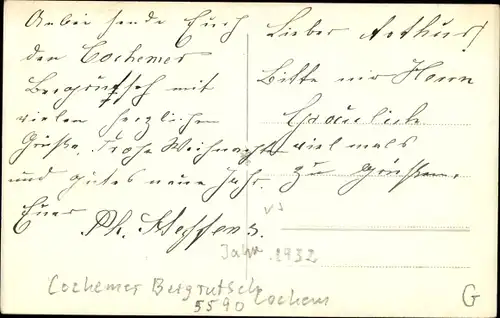 Anbei sende Euch
den Cochemer
Bergrutsch mit
vielen herzlichen
Grüße. Frohe Weihnachten
und gutes neue Jahr.
Euer Ph. Steffens.
Lieber Arthur!
Bitte mir Herrn
Gräulich
vielmals
zu grüßen.
Jahr 1932
Cochemer Bergrutsch
5590 Cochem
G